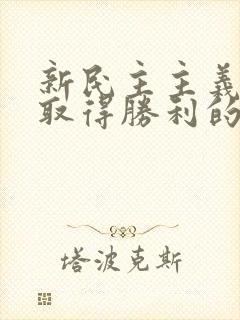 新民主主義
取得勝利的
塔波克斯